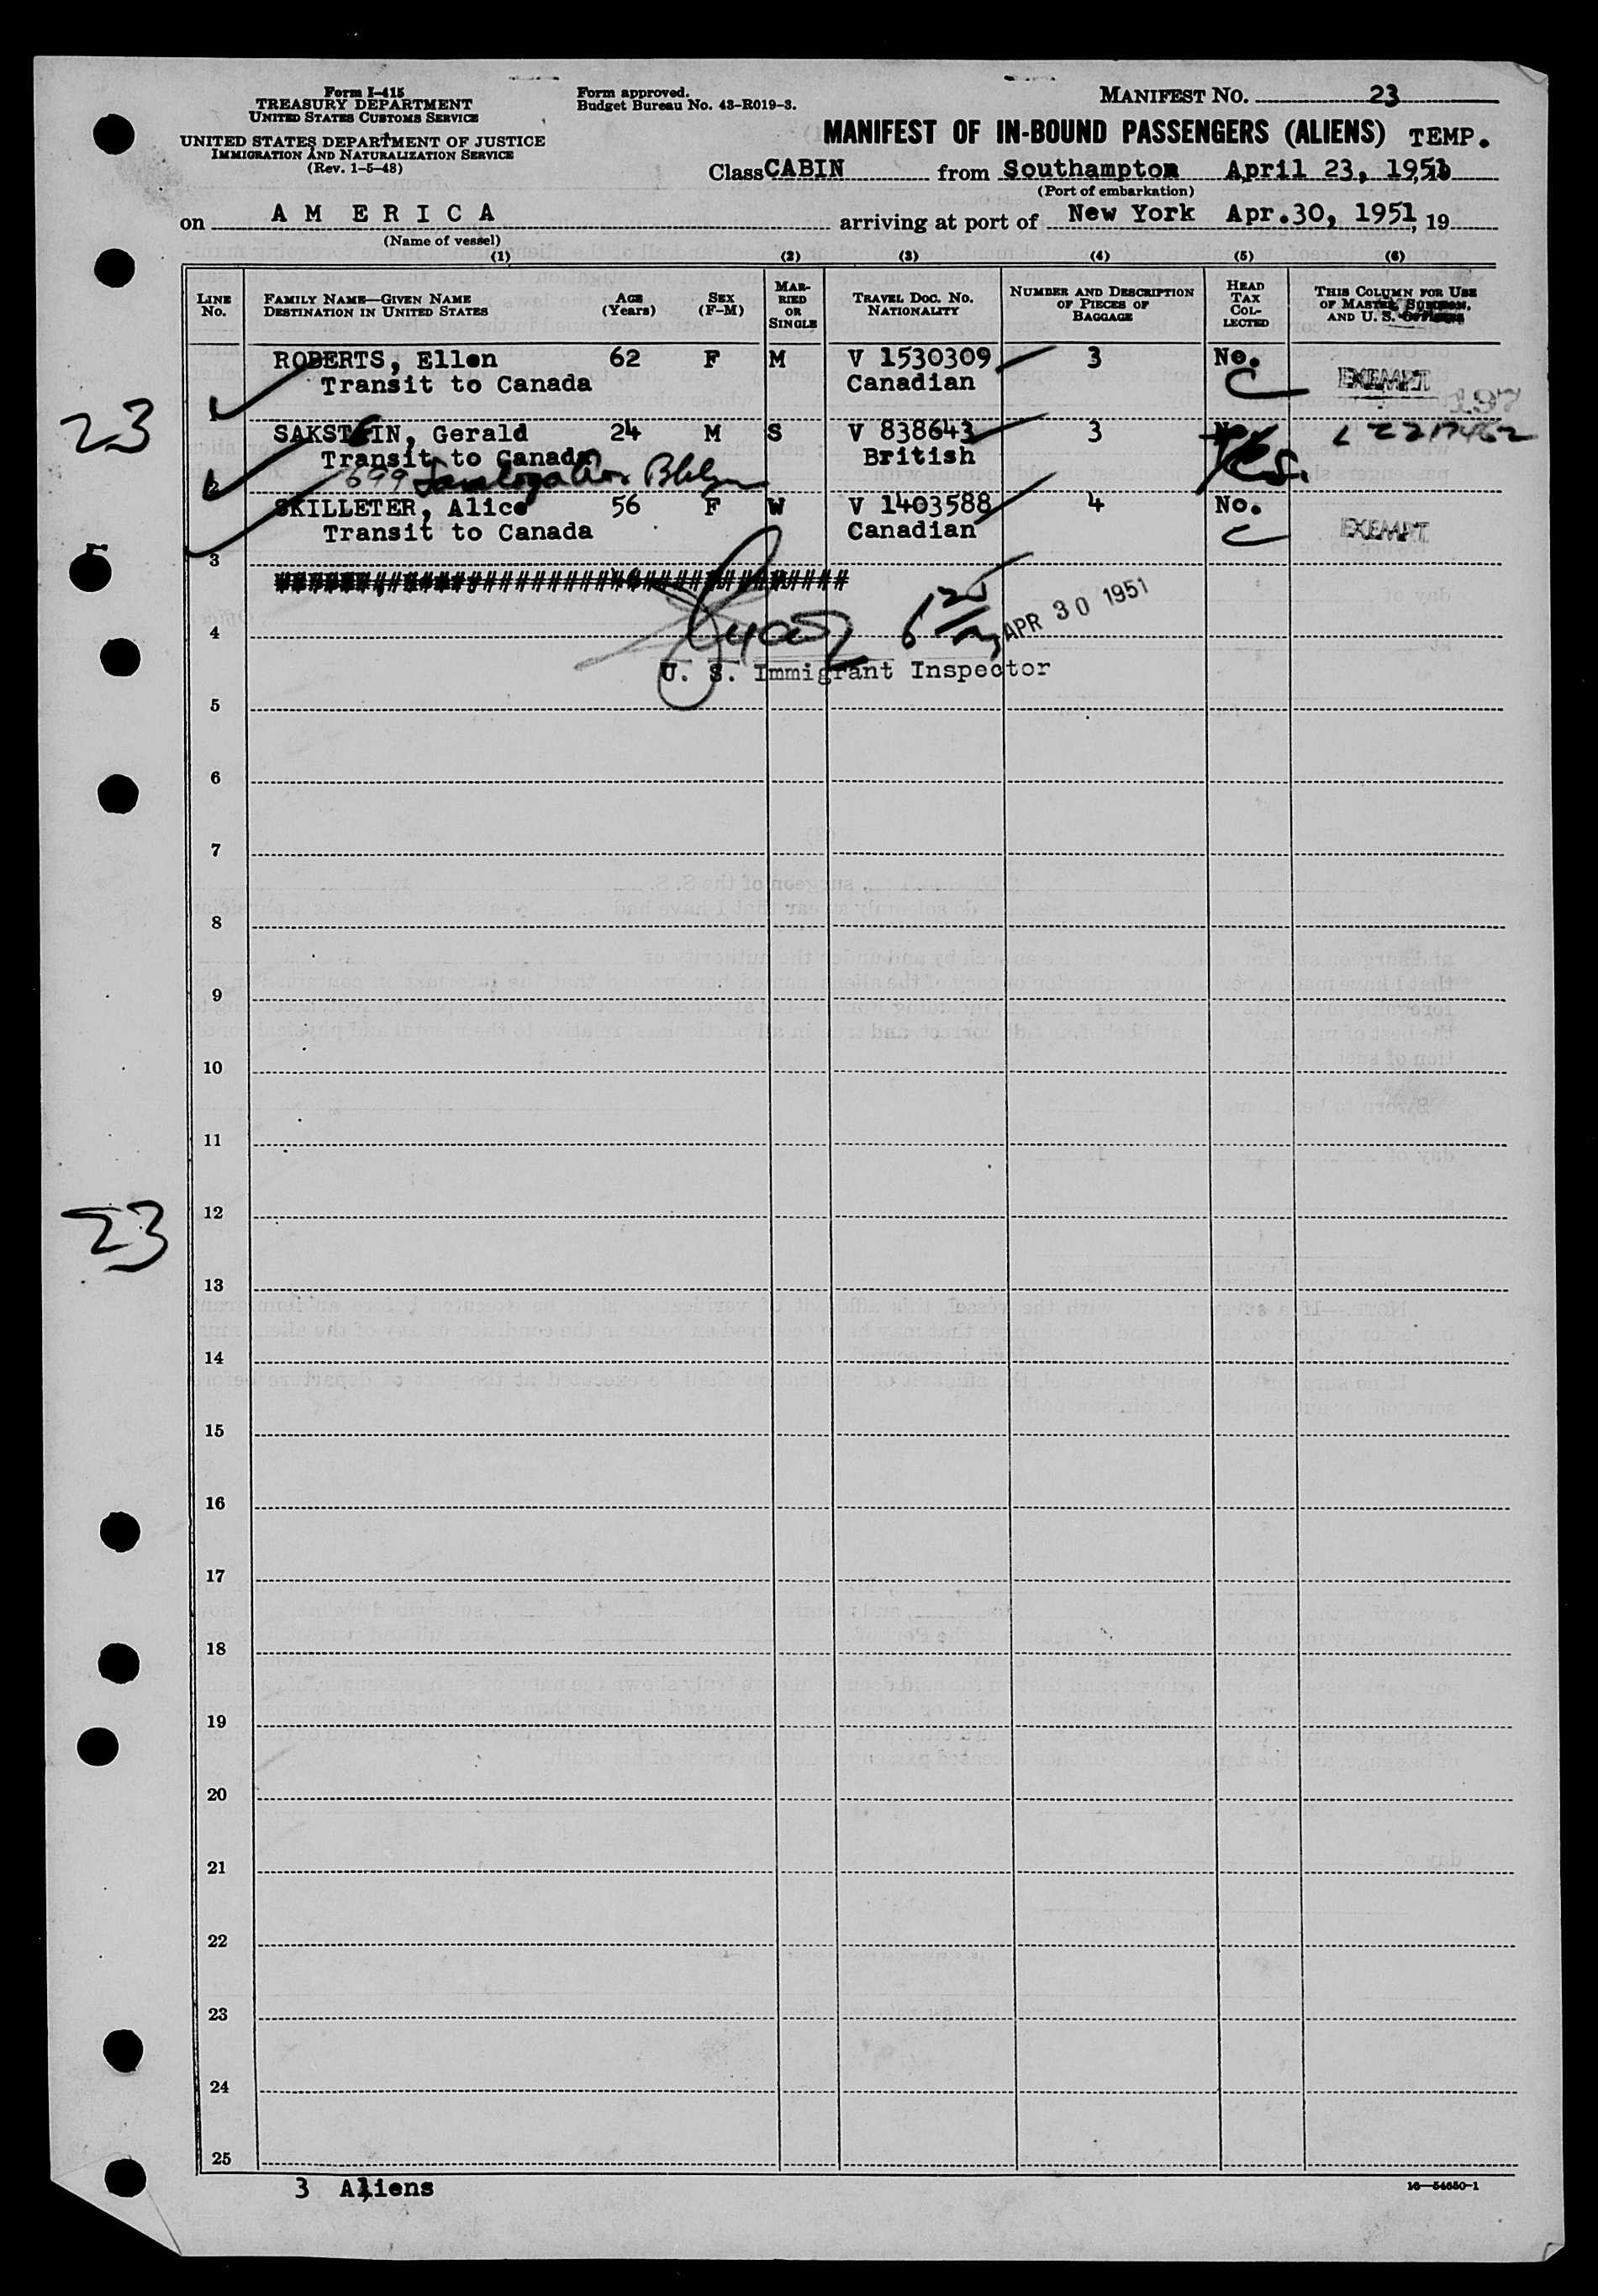 Form I-415
TREASURY DEPARTMENT
UNITED STATES CUSTOMS SERVICE
UNITED STATES DEPARTMENT OF JUSTICE
IMMIGRATION AND NATURALIZATION SERVICE
(Rev. 1-5-48)
Form approved.
Budget Bureau No. 43-R019-3.
MANIFEST NO. 23
MANIFEST OF IN-BOUND PASSENGERS (ALIENS) TEMP.
Class CABIN from Southampton April 23, 1951
(Port of embarkation)
on A M E R I C A arriving at port of New York Apr.30, 1951, 19
(Name of vessel)
(1) (2) (3) (4) (5) (6)
LINE NO. FAMILY NAME—GIVEN NAME DESTINATION IN UNITED STATES AGE (Years) SEX (F-M) MARRIED OR SINGLE TRAVEL DOC. NO. NATIONALITY NUMBER AND DESCRIPTION OF PIECES OF BAGGAGE HEAD TAX COLLECTED THIS COLUMN FOR USE OF MASTER, SURGEON, AND U. S. OFFICERS
ROBERTS, Ellen 62 F M V 1530309 3 No.
Transit to Canada Canadian C EXEMPT
1
23
197
SAKSTEIN, Gerald 24 M S V 838643 3 No
Transit to Canada British Yes.
699 Bklyn
2
SKILLETER, Alice 56 F W V 1403588 4 No.
Transit to Canada Canadian C EXEMPT
3
5
APR 30 1951
4
U. S. Immigrant Inspector
5
6
7
8
9
10
11
12
23
13
14
15
16
17
18
19
20
21
22
23
24
25
3 Aliens
16—54650-1